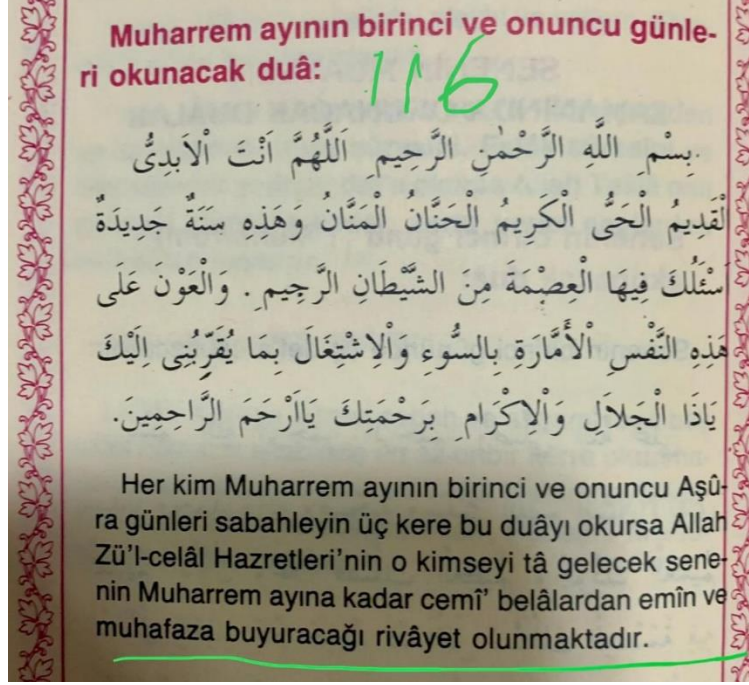 Muharrem ayının birinci ve onuncu günle-
ri okunacak duâ:
116
بِسْمِ اللَّهِ الرَّحْمٰنِ الرَّحِيمِ اَللَّهُمَّ اَنْتَ الْاَبَدِىُّ
الْقَدِيمُ الْحَىُّ الْكَرِيمُ الْحَنَّانُ الْمَنَّانُ وَهَذِهِ سَنَةٌ جَدِيدَةٌ
اَسْئَلُكَ فِيهَا الْعِصْمَةَ مِنَ الشَّيْطَانِ الرَّجِيمِ . وَالْعَوْنَ عَلَى
هَذِهِ النَّفْسِ الْأَمَّارَةِ بِالسُّوءِ وَالْاِشْتِغَالَ بِمَا يُقَرِّبُنِى اِلَيْكَ
يَاذَا الْجَلاَلِ وَالْاِكْرَامِ بِرَحْمَتِكَ يَااَرْحَمَ الرَّاحِمِينَ.
Her kim Muharrem ayının birinci ve onuncu Aşû-
ra günleri sabahleyin üç kere bu duâyı okursa Allah
Zü’l-celâl Hazretleri’nin o kimseyi tâ gelecek sene-
nin Muharrem ayına kadar cemî’ belâlardan emîn ve
muhafaza buyuracağı rivâyet olunmaktadır.